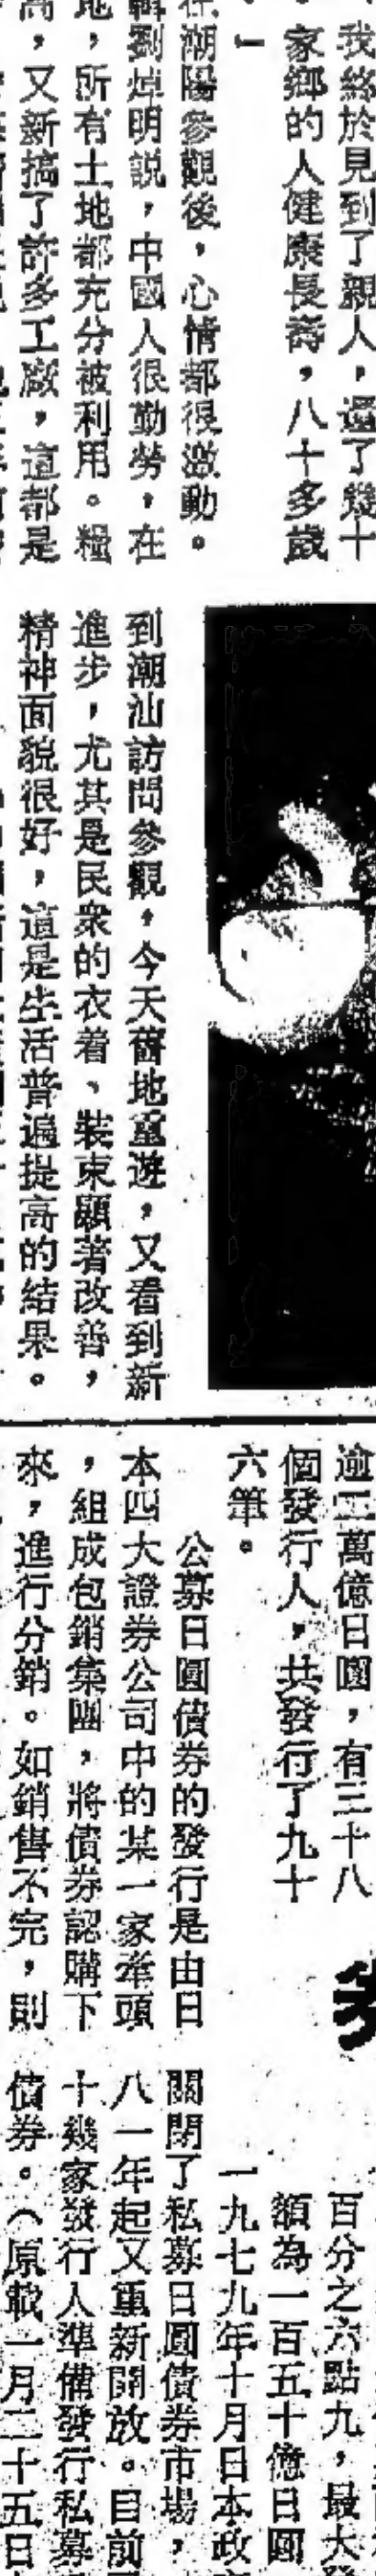 我終於見到了親人，還了幾十
家鄉的人健康長壽，八十多歲
在潮陽參觀後，心情都很激動。
輯劉焯明説，中國人很勤勞，在
地，所有土地都充分被利用。糧
高，又新搞了許多工廠，這都是
到潮汕訪問參觀，今天舊地重遊，又看到新
進步，尤其是民衆的衣着、裝束顯著改善，
精神面貌很好，這是生活普遍提高的結果。
逾二萬億日圓，有三十八
個發行人，共發行了九十
六筆。
公募日圓債券的發行是由日
本四大證券公司中的某一家牽頭
，組成包銷集團，將債券認購下
來，進行分銷。如銷售不完，則
券
百分之六點九，最大
額為一百五十億日圓
一九七九年十月日本政
關閉了私募日圓債券市場，
八一年起又重新開放。目前
十幾家發行人準備發行私募
債券。（原載一月二十五日